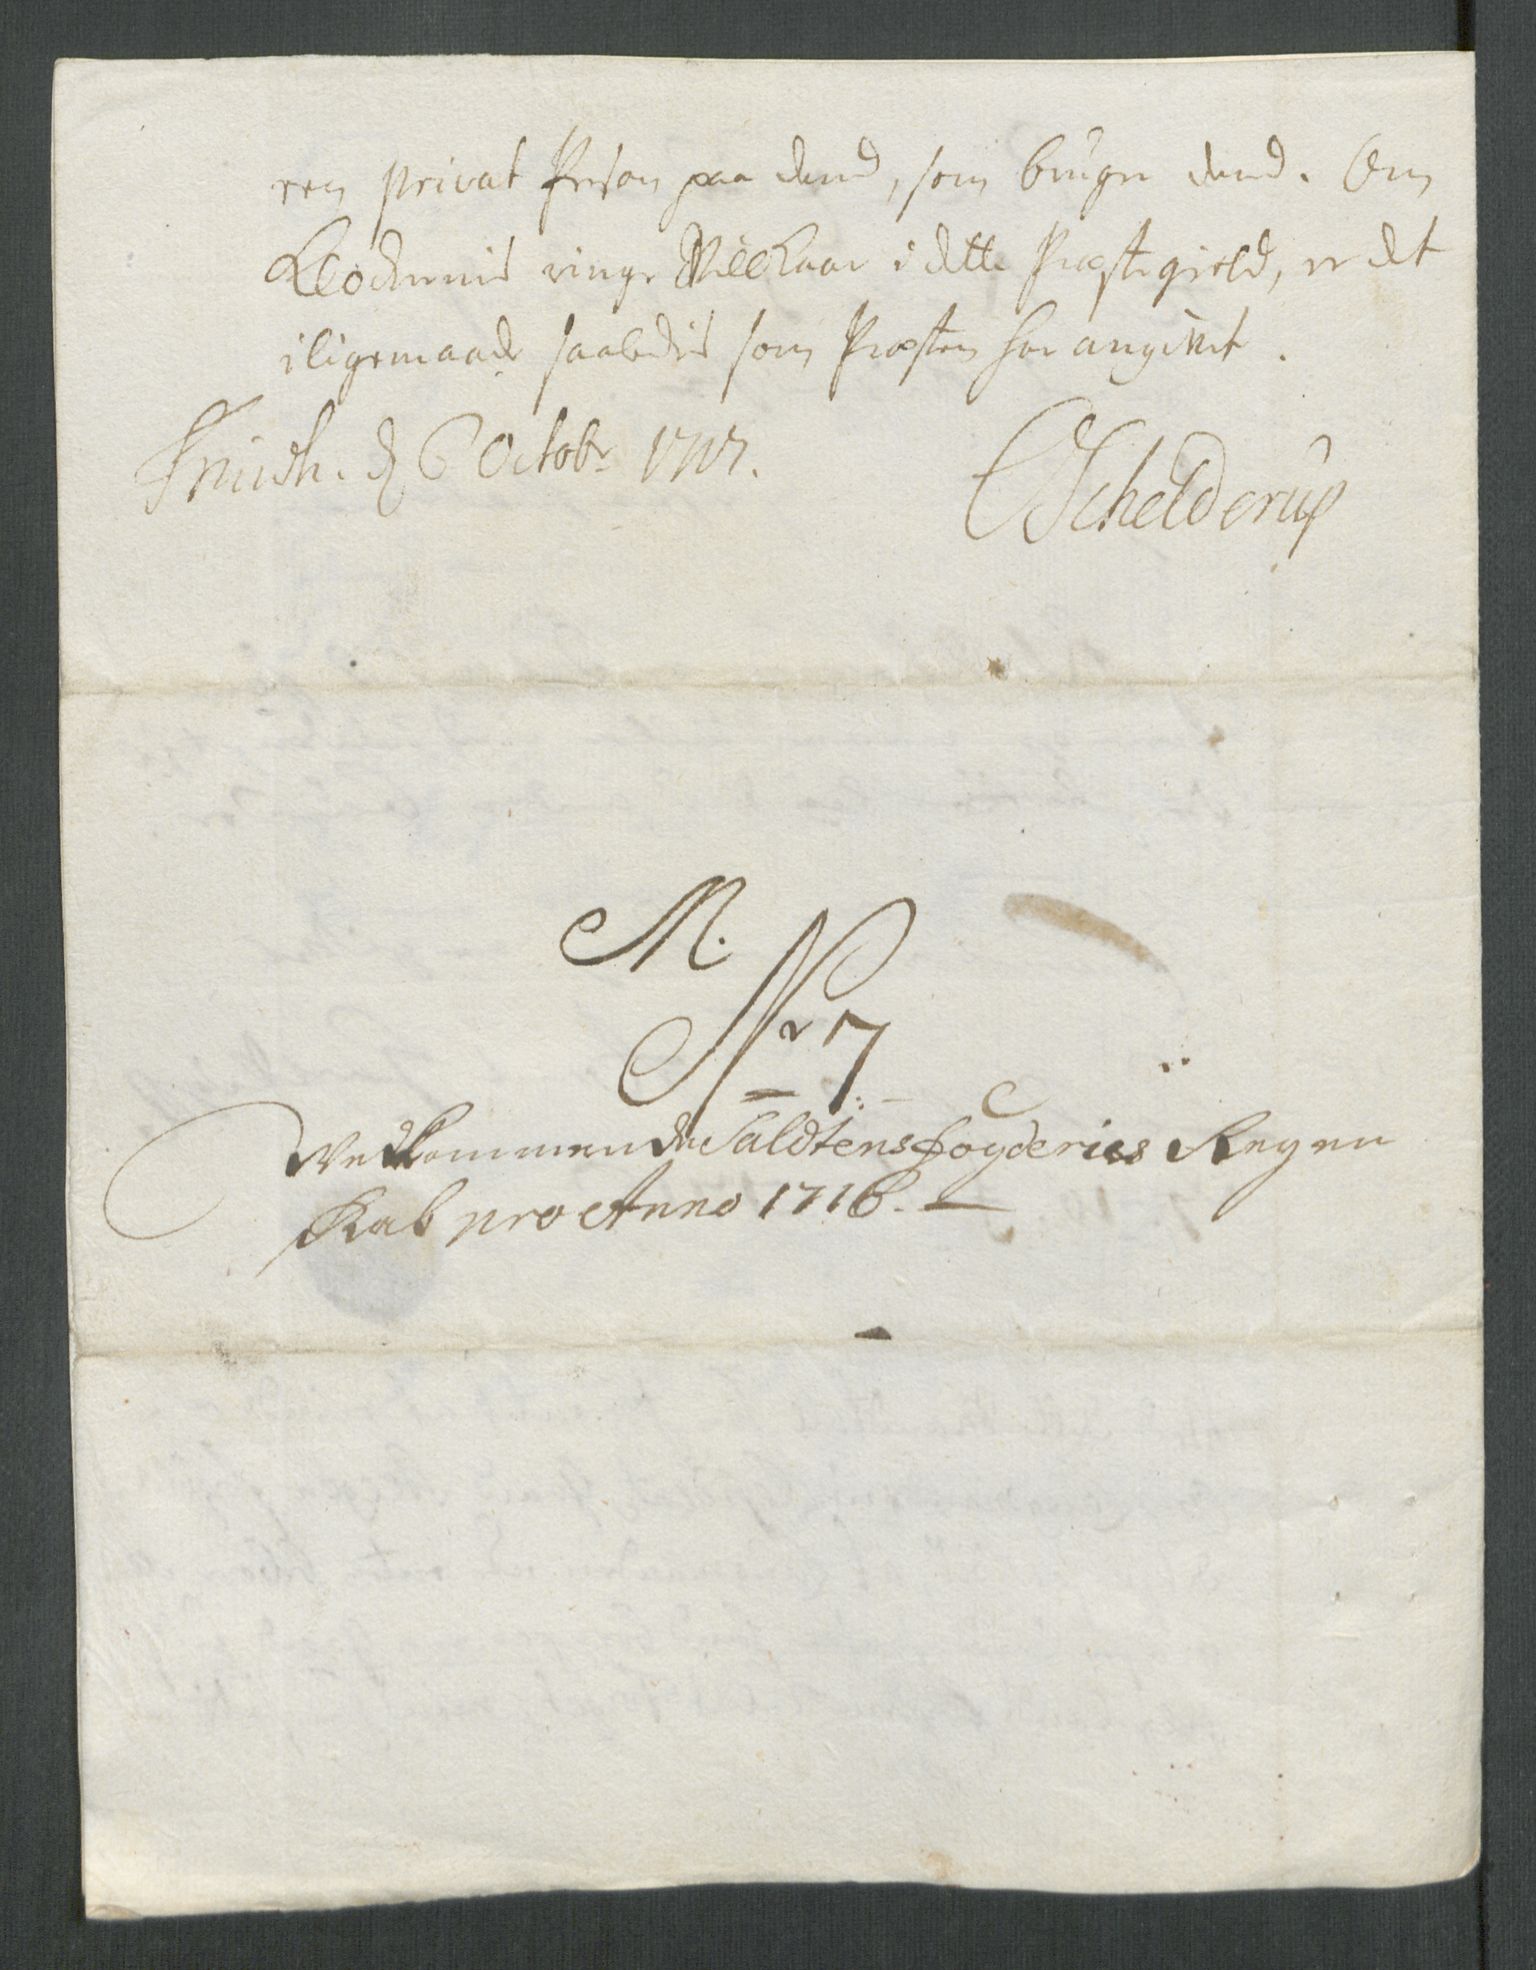 ren privat Person paa dend, som bruger dend. Om
Klockernis ringe Willkaar i dette Præstegield, er det
iligemaade saaledis som Præsten har angivet.
Trundh. d 6 Octobr 1717.
CSchelderup
M.
Nr 7
Vedkommende Saldtens fogderies Regen
skab pro Anno 1716.